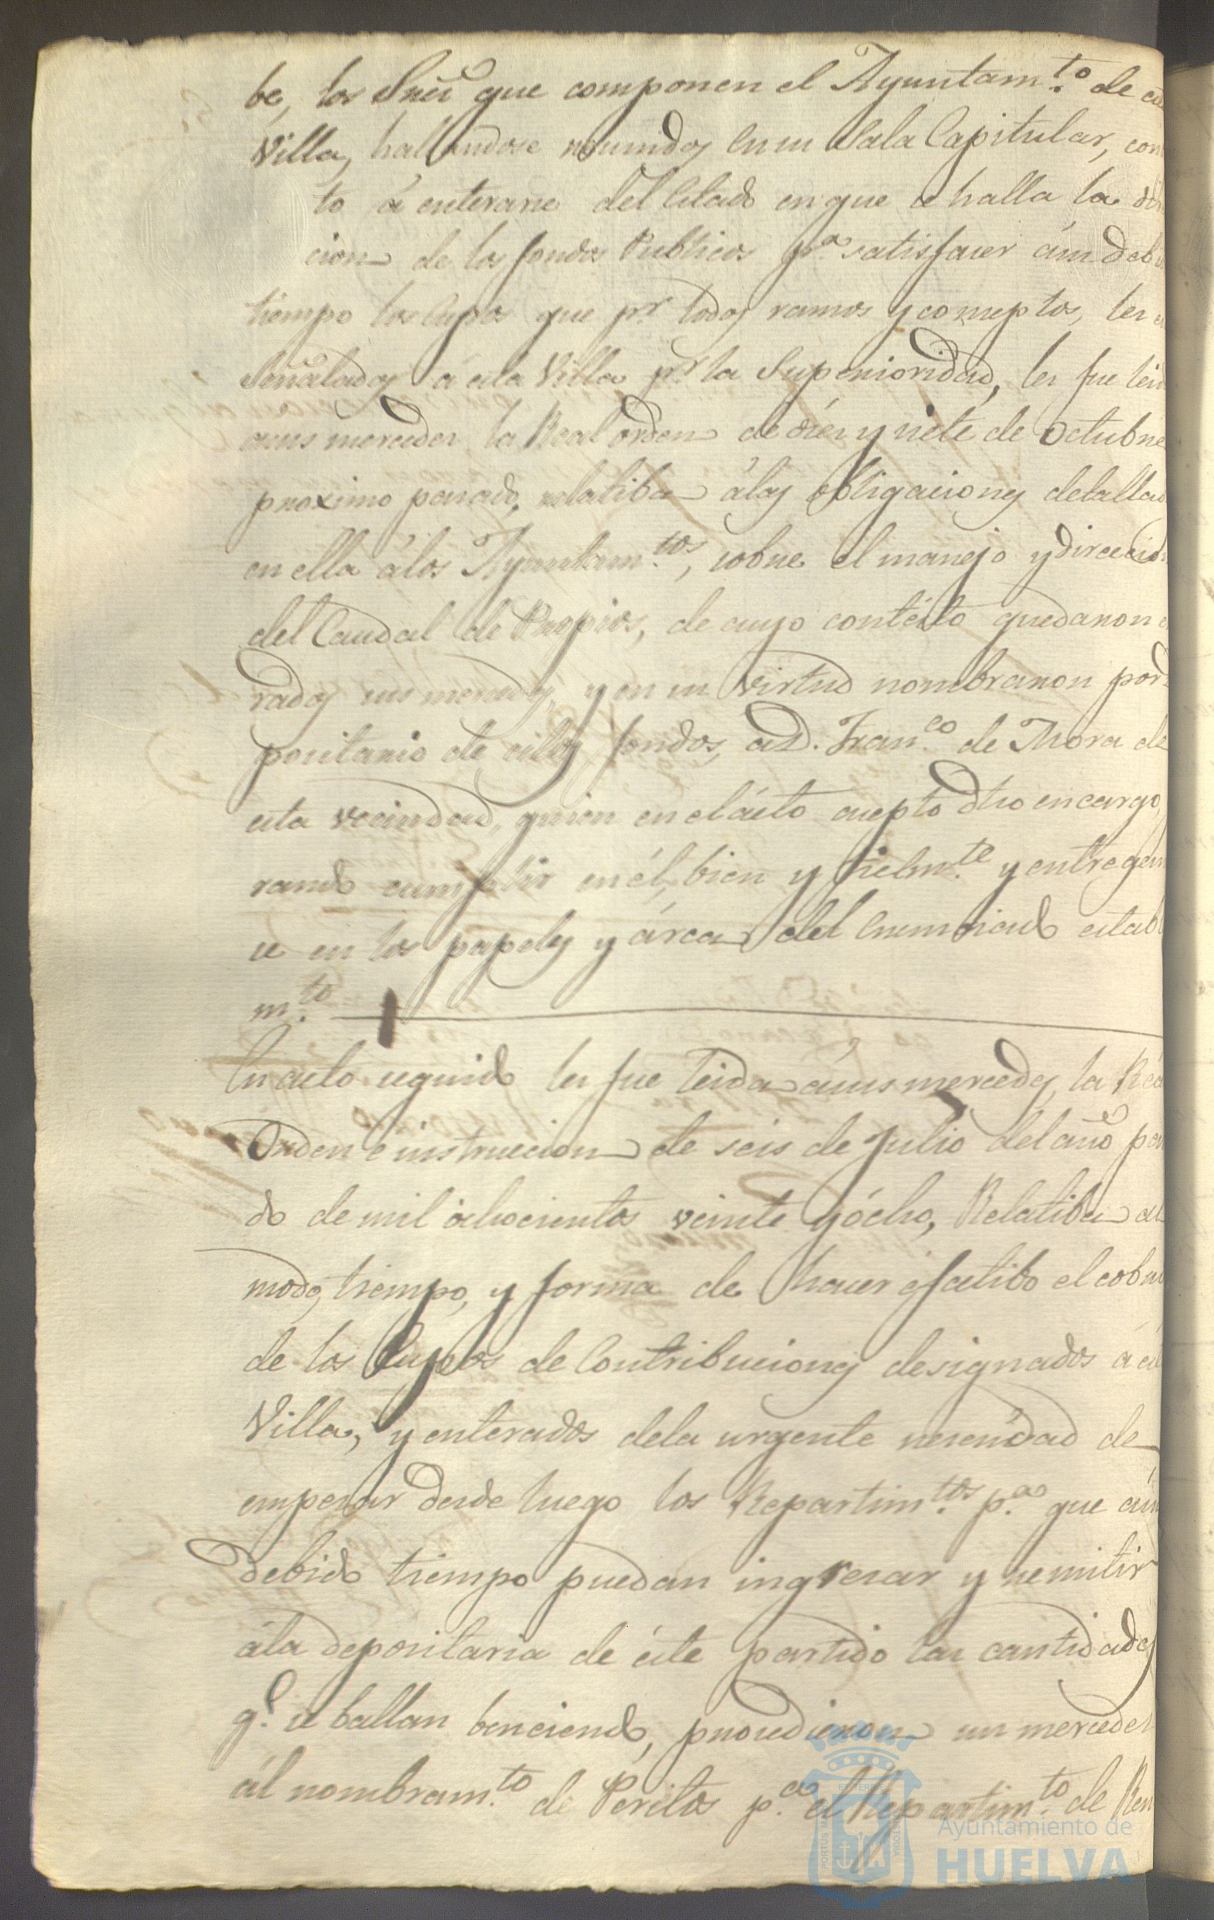 be, los Sres que componen el Ayuntam.to de esta
Villa, hallandose reunidos en su Sala Capitular, con
to á enterarse del estado en que se halla la
cion de los fondos Publicos p.a satisfacer á su deb
tiempo los cupos que pr todos ramos y conceptos, les
señalados á esta Villa pr la Superioridad, les fue leid
a sus mercedes la Real orden de diez y siete de Octubre
proximo pasado, relatiba á las obligaciones detallad
en ella á los Ayuntam.tos, sobre el manejo y direccion
del Caudal de Propios, de cuyo contésto quedaron
rados sus mercedes, y en su virtud nombraron por D
positario de estos fondos, a D. Fran.co de Mora de
esta vecindad, quien en el ácto acepto dho encargo
rando cumplir en él, bien y fielm.te y entregan
se en los papeles y árca del enunciado establ
m.to
En acto seguido les fue leida á sus mercedes, la Rea
Orden é instruccion de seis de Julio del año pasa
do de mil ochocientos veinte y ócho, Relatiba al
modo, tiempo, y forma de hacer efectibo el cobro
de los Cupos de Contribuciones designados á es
Villa, y enterados de la urgente necesidad de
empezar desde luego los Repartim.tos p.a que á su
debido tiempo puedan ingresar y remitir
á la depositaria de éste partido las cantidades
q.e se hallan benciendo, procedieron sus mercedes
ál nombram.to de Peritos p.a el Repartim.to de Ren
Ayuntamiento de
HUELVA